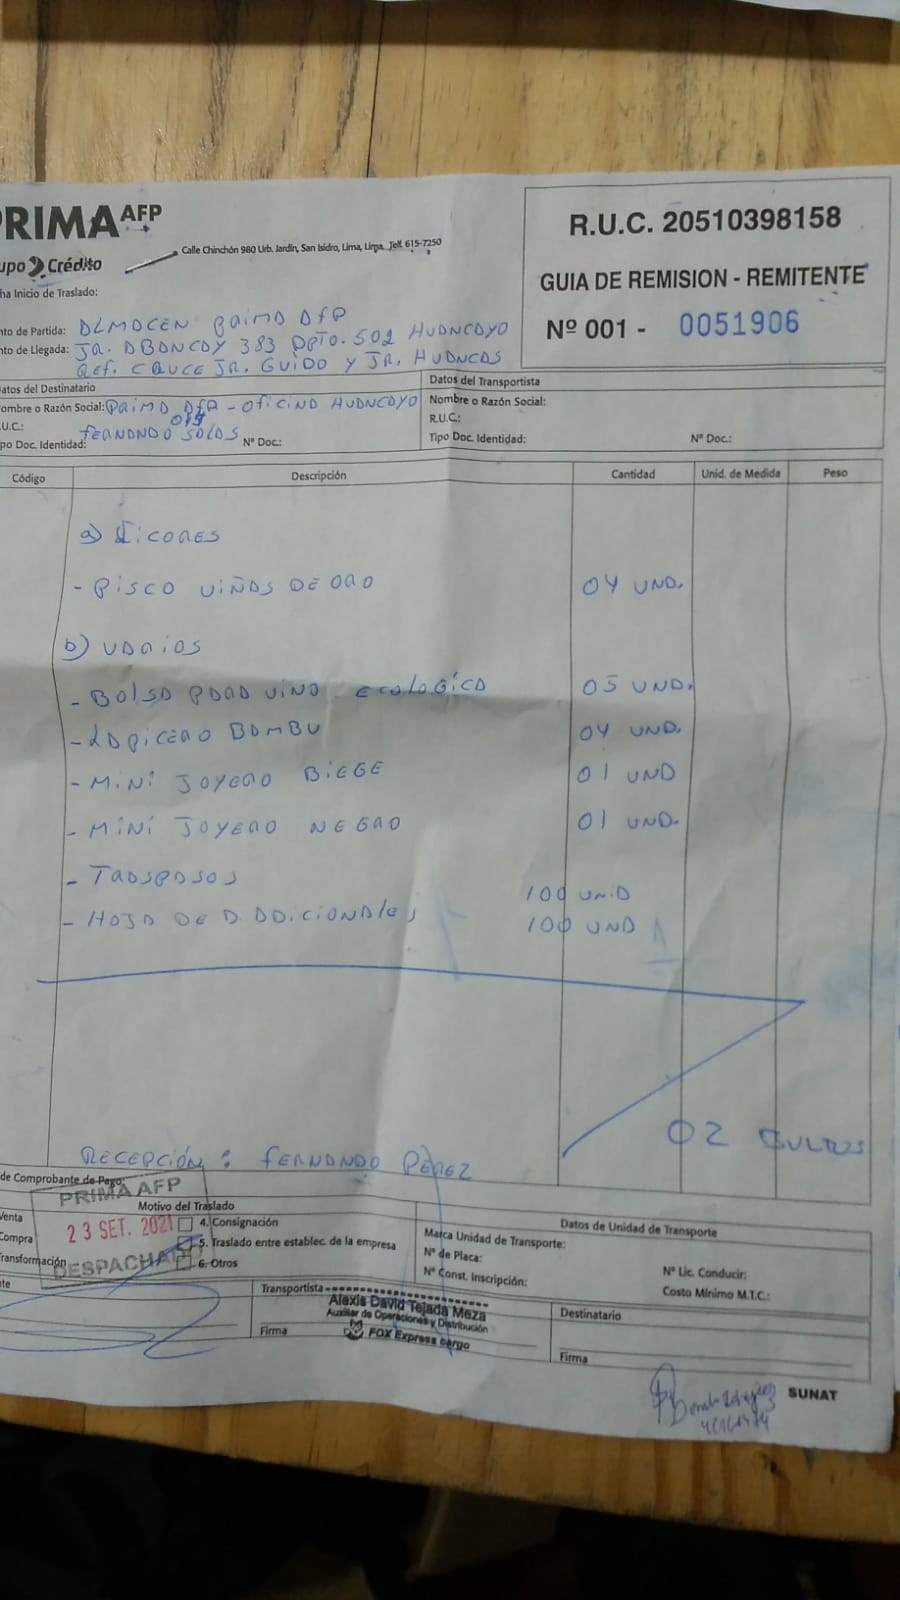 PRIMA AFP
Grupo Crédito
Calle Chinchón 980 Urb. Jardín, San Isidro, Lima, Lima. Telf. 615-7250
R.U.C. 20510398158
GUIA DE REMISION - REMITENTE
Nº 001 - 0051906
ha Inicio de Traslado:
nto de Partida: ALMACEN PRIMA AFP
nto de Llegada: JR. ABANCAY 383 DPTO. 502 HUANCAYO
REF. CRUCE JR. GUIDO Y JR. HUANCAS
atos del Destinatario
ombre o Razón Social: PRIMA AFP - OFICINA HUANCAYO
.U.C.:
FERNANDO SALAS
po Doc. Identidad: Nº Doc.:
Datos del Transportista
Nombre o Razón Social:
R.U.C.:
Tipo Doc. Identidad: Nº Doc.:
Código Descripción Cantidad Unid. de Medida Peso
a) LICORES
- PISCO VIÑAS DE ORO 04 UND.
b) VARIOS
- BOLSA PARA VINO ECOLOGICA 05 UND.
- LAPICERO BAMBU 04 UND.
- MINI JOYERO BIEGE 01 UND
- MINI JOYERO NEGRO 01 UND.
- TRASPASOS 100 UNID
- HOJA DE D. ADICIONALES 100 UND
02 BULTOS
RECEPCIÓN : FERNANDO PEREZ
de Comprobante de Pago:
PRIMA AFP
23 SET. 2021
DESPACHADO
Motivo del Traslado
Venta
Compra
Transformación
4. Consignación
5. Traslado entre establec. de la empresa
6. Otros
Datos de Unidad de Transporte
Marca Unidad de Transporte:
Nº de Placa:
Nº Const. Inscripción:
Nº Lic. Conducir:
Costo Mínimo M.T.C.:
Transportista
Alexis David Tejada Meza
Auxiliar de Operaciones y Distribución
FOX Express cargo
Firma
Destinatario
Firma
SUNAT